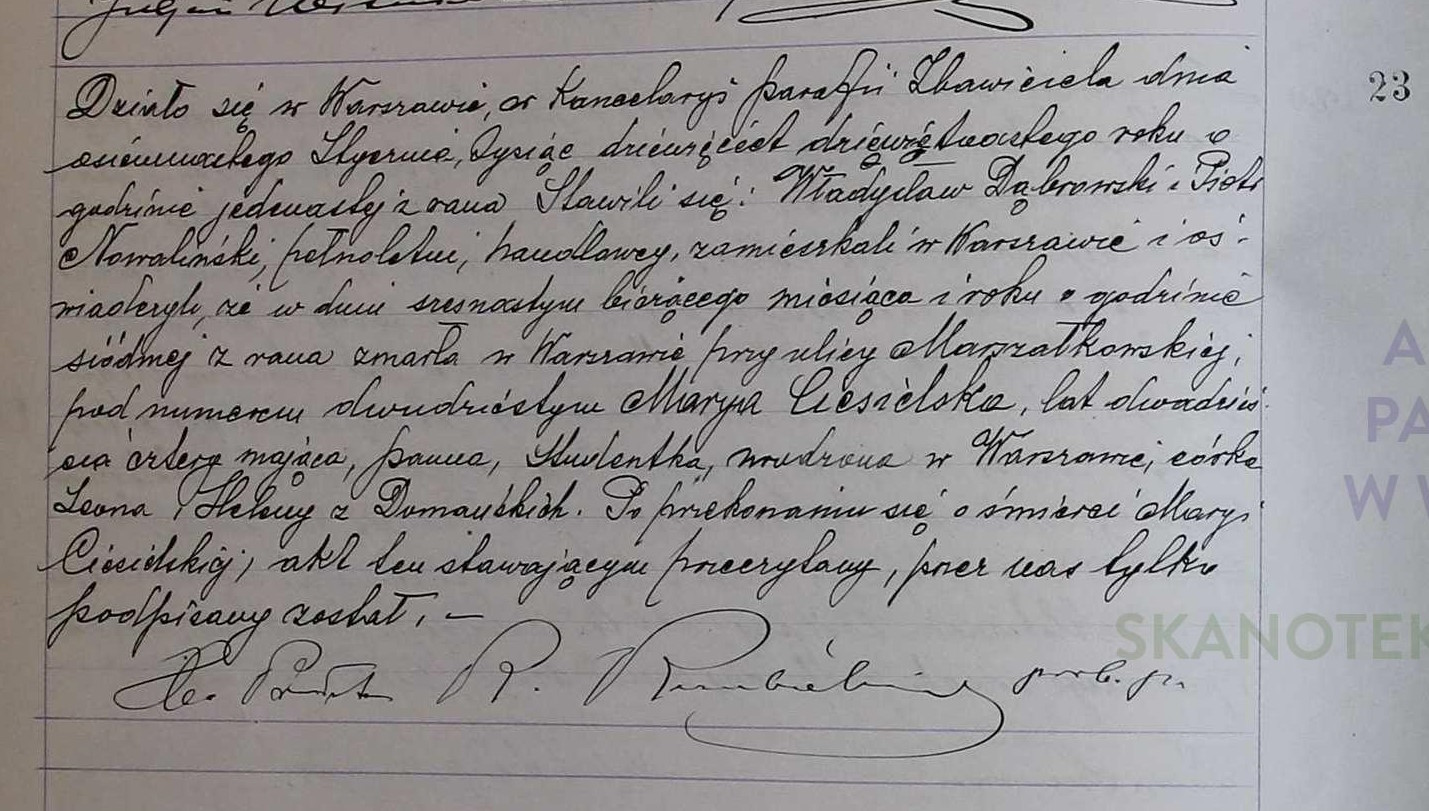 Działo się w Warszawie, w Kancelaryi parafii Zbawiciela dnia
23
osiemnastego Stycznia, Tysiąc dziewięćset dziewiętnastego roku o
godzinie jedenastej z rana Stawili się: Władysław Dąbrowski i Piotr
Nowaliński, pełnoletni, handlowcy, zamieszkali w Warszawie i oś-
wiadczyli, że w dniu szesnastym bieżącego miesiąca i roku o godzinie
siódmej z rana zmarła w Warszawie przy ulicy Marszałkowskiej,
pod numerem dwudziestym Marya Ciesielska, lat dwadzieś-
cia cztery mająca, panna, Studentka, urodzona w Warszawie, córka
Leona i Heleny z Domańskich. Po przekonaniu się o śmierci Maryi
Ciesielskiej, akt ten stawającym przeczytany, przez nas tylko
podpisany został. —
A
PA
W W
SKANOTEK